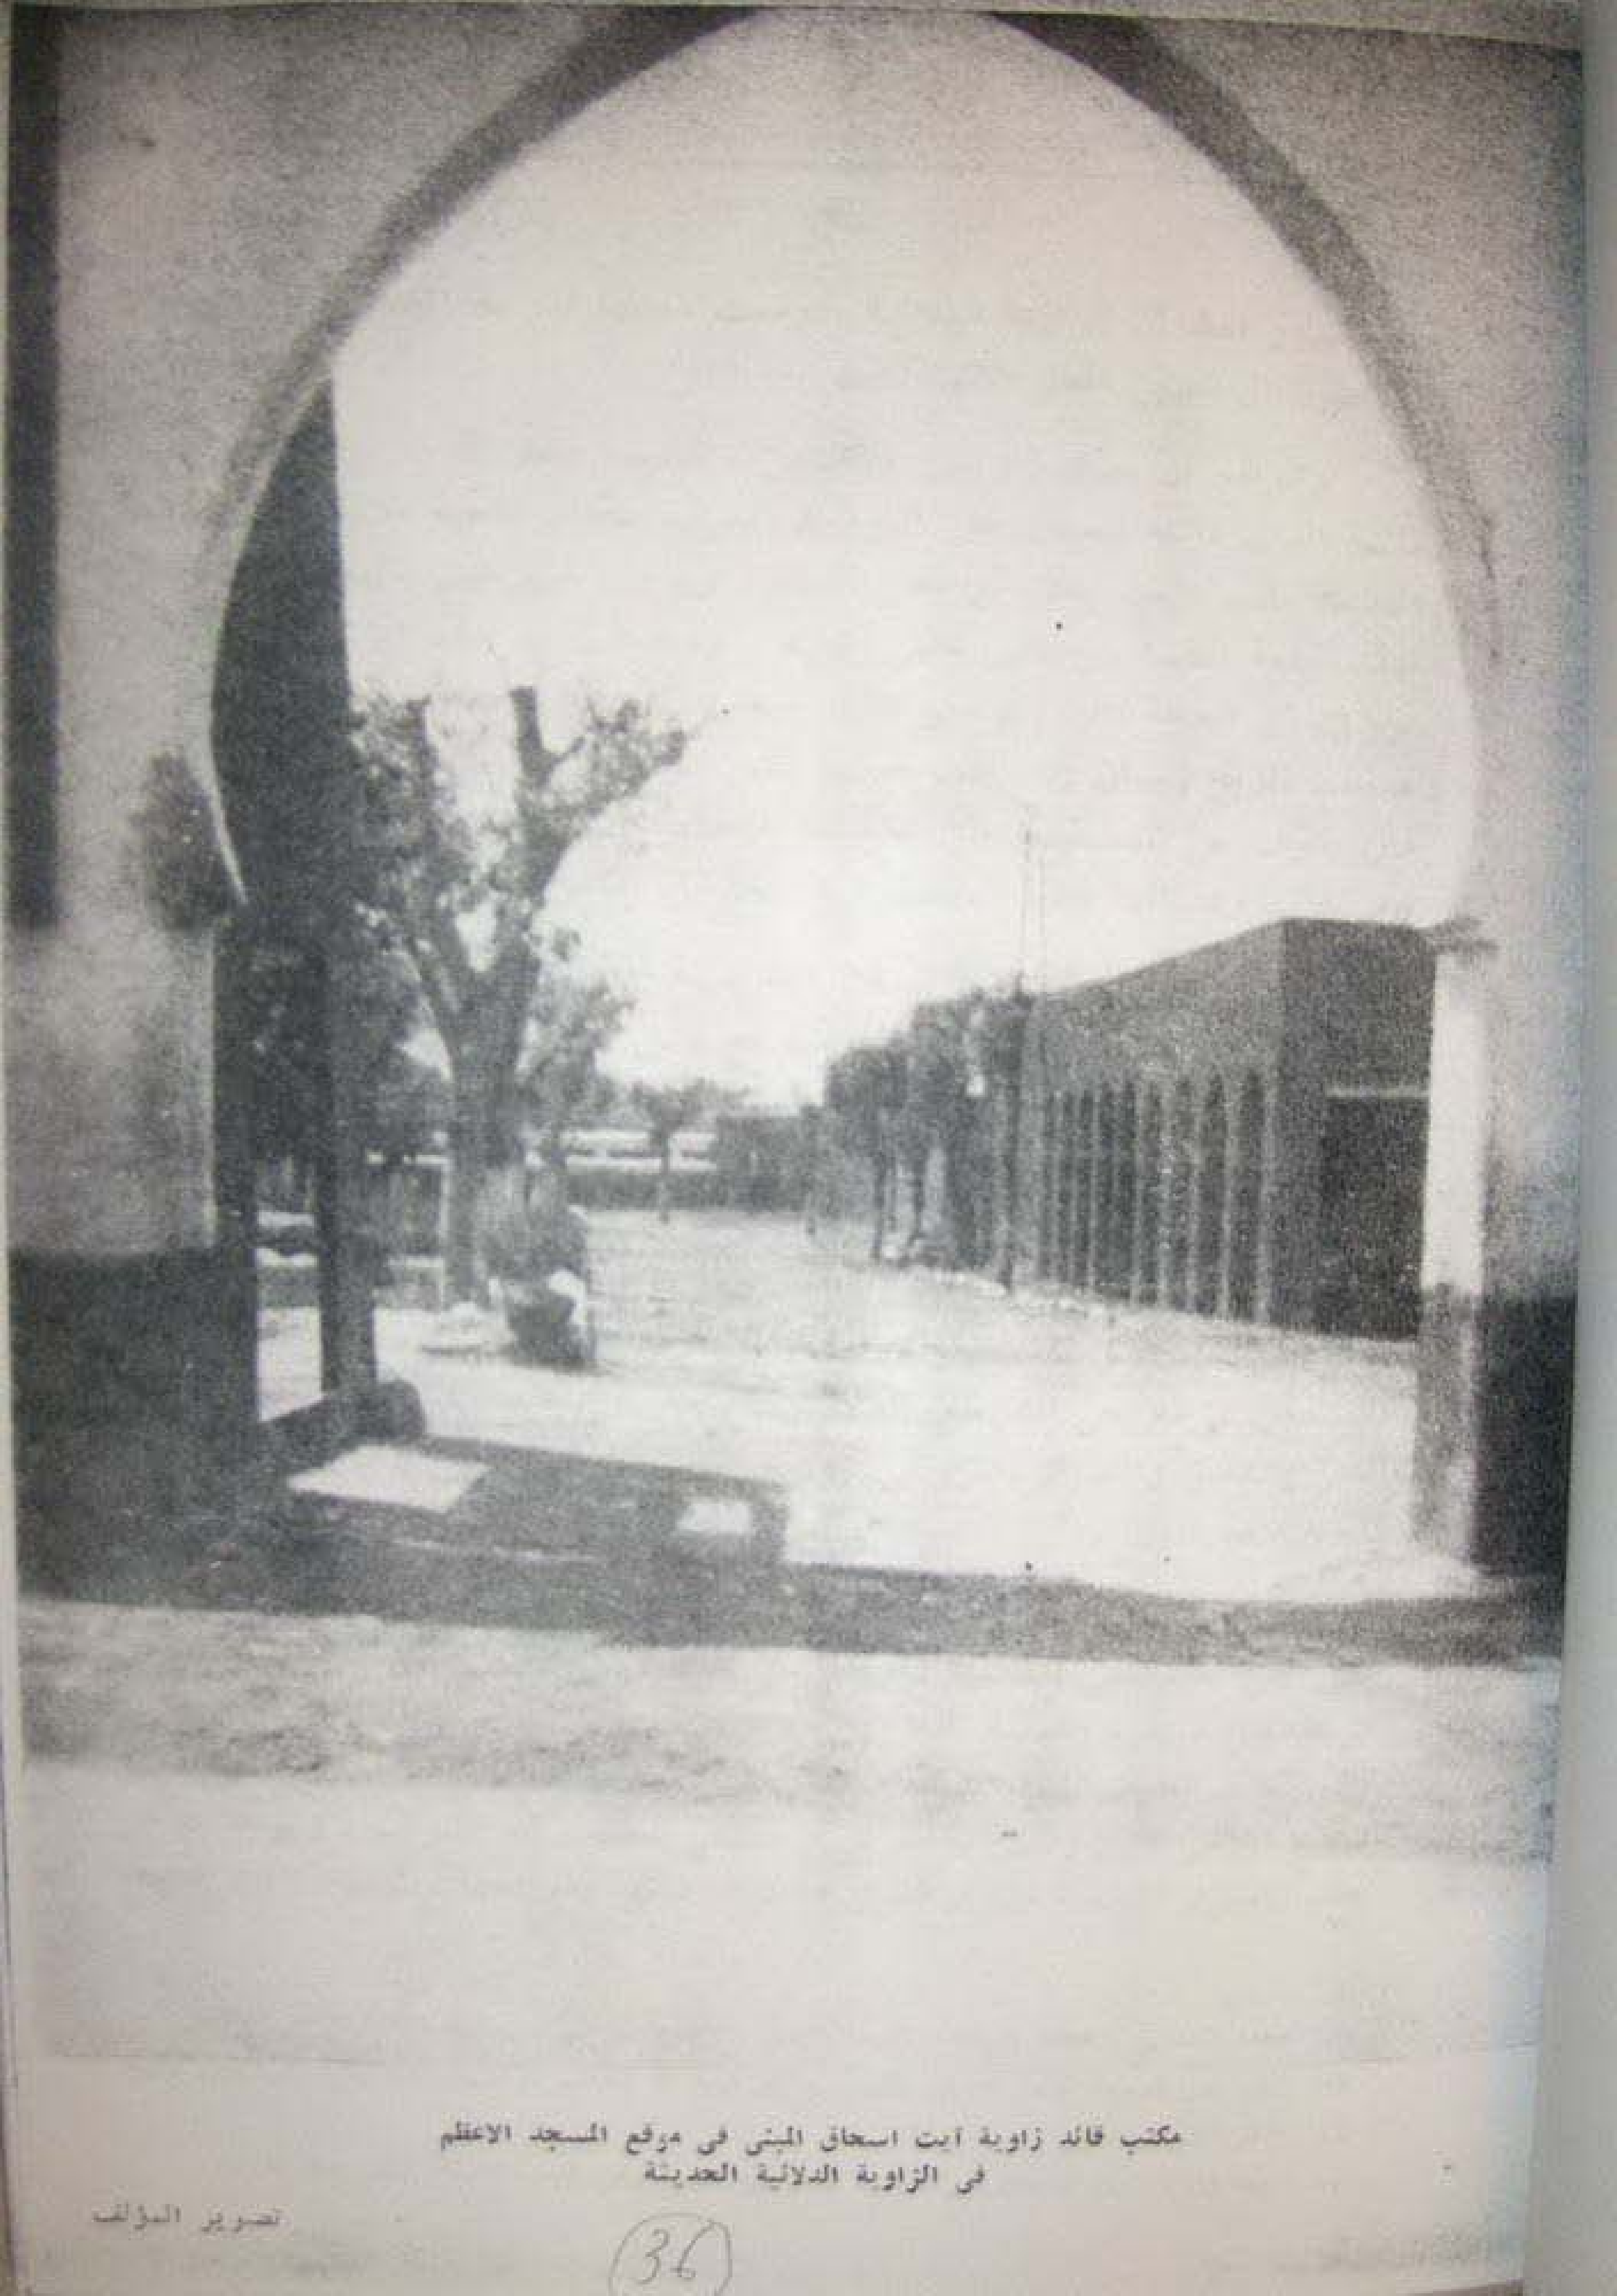 مكتب قائد زاوية آيت اسحاق المبنى فى موقع المسجد الاعظم
فى الزاوية الدلائية الحديثة
تصوير المؤلف
36